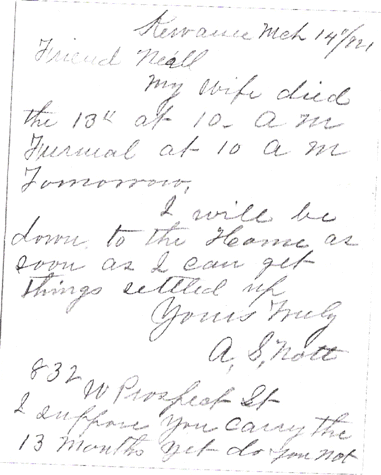 Kewanee Mch 14"/21
Friend Neall
My Wife died
the 13th at 10 - A M
Funeral at 10 A M
Tomorrow,
I will be
down to the Home as
soon as I can get
things settled up
Yours Truly
A. S. Nott
832 W Prospect St
I suppose you carry the
13 months yet do you not